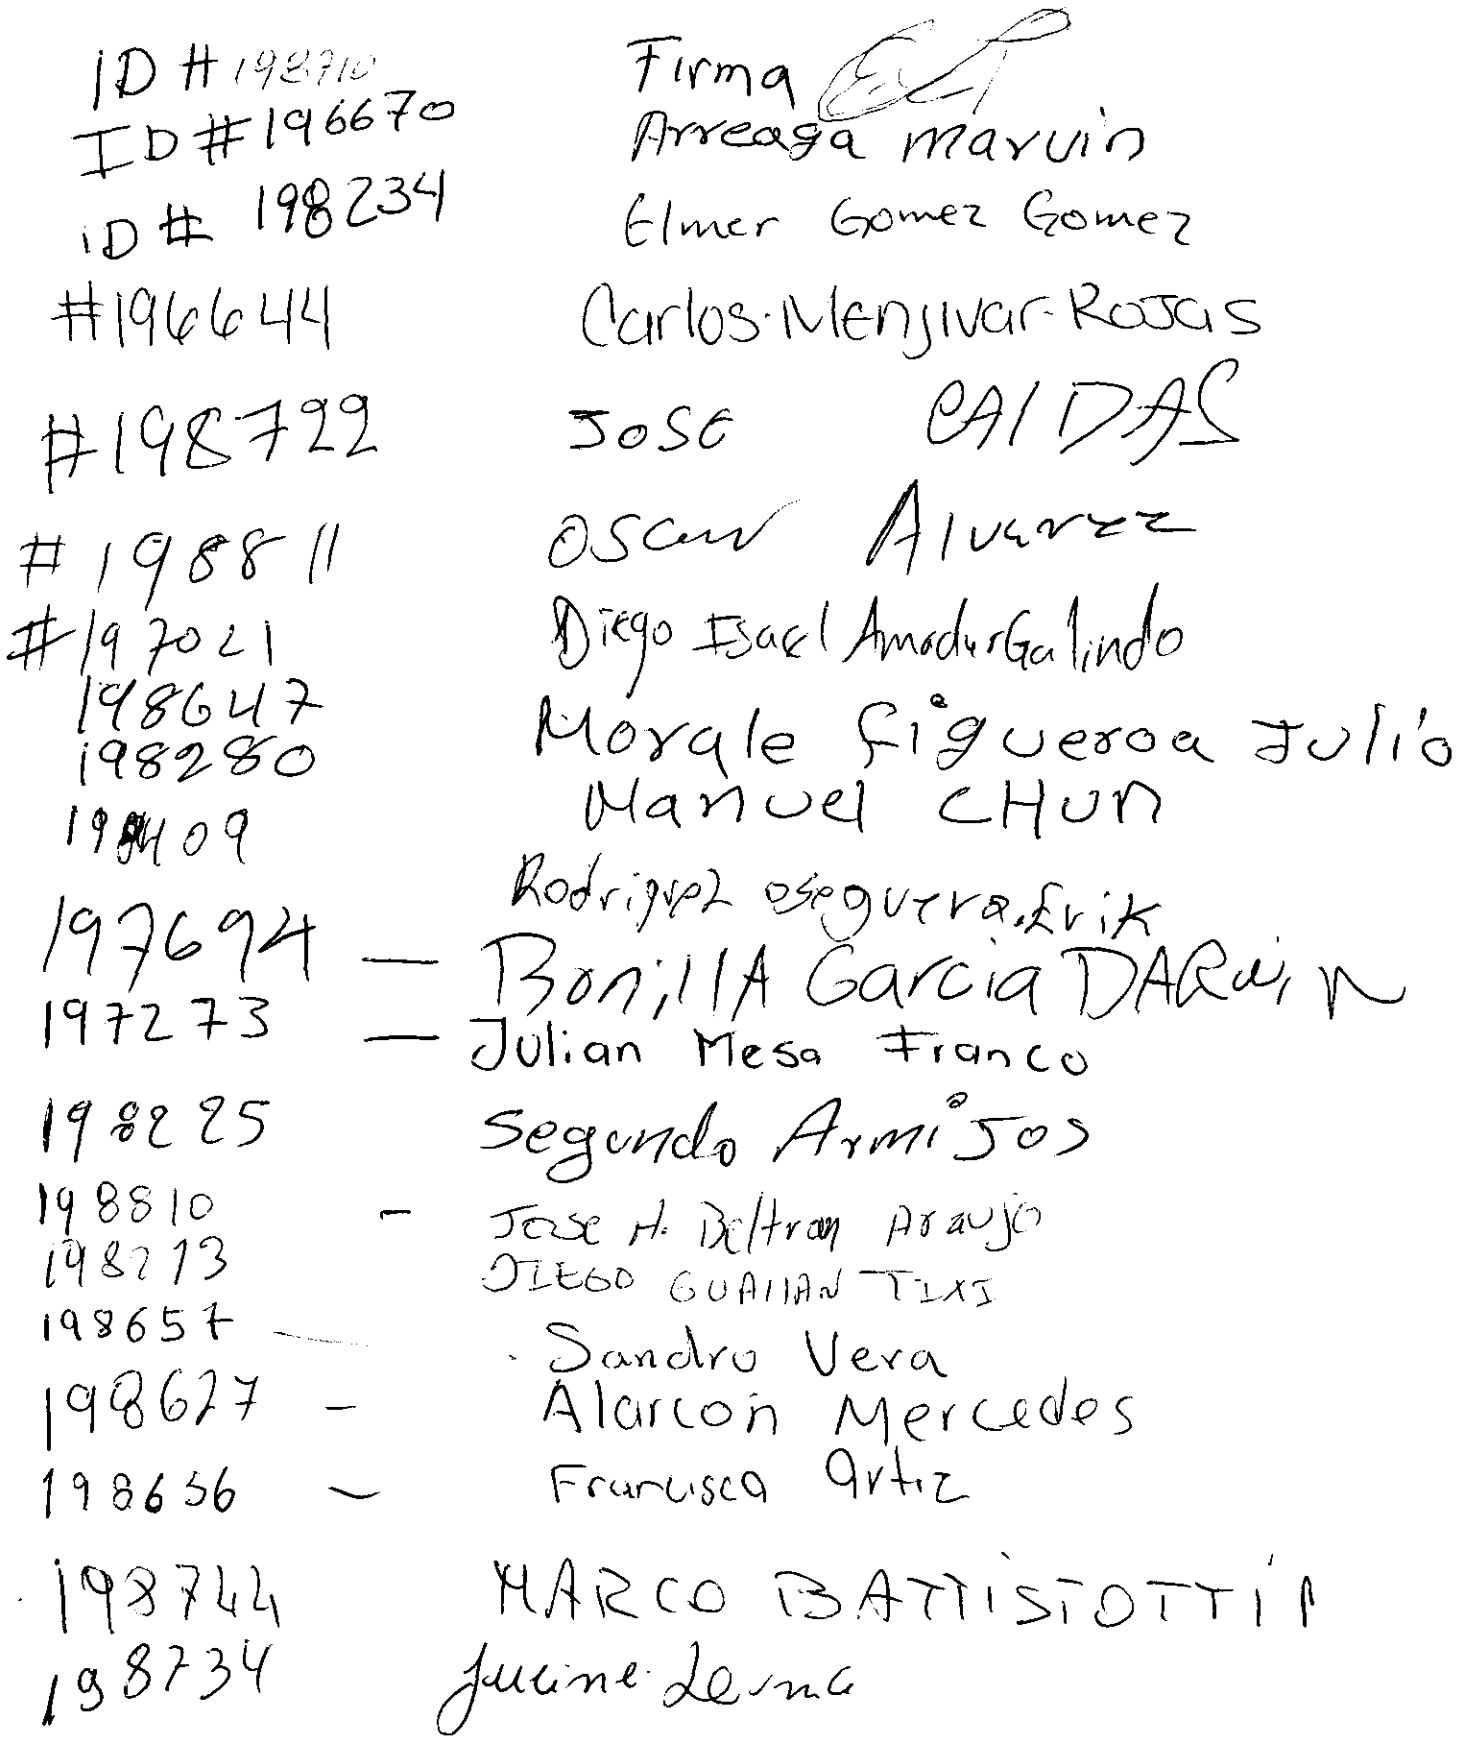 ID # 198710 Firma
ID # 196670 Arreaga marvin
iD # 198234 Elmer Gomez Gomez
#196644 Carlos·Menjivar-Rojas
#198722 JOSE CAlDAS
#198811 OSCar Alvarez
#197021 Diego Isael Amador Galindo
198647 Morale figueroa Julio
198280 Manuel CHUn
409 Rodriguez oseguera. Erik
197694 — BonillA Garcia DARwin
197273 — Julian Mesa Franco
198225 Segundo ArmiJos
198810 - Jose H. Beltran Araujo
198273 DIEGO GUAllAN TIXI
198657 Sandro Vera
198627 - Alarcon Mercedes
198656 - Francisca Ortiz
198744 MARCO BATTiSTOTTi
198734